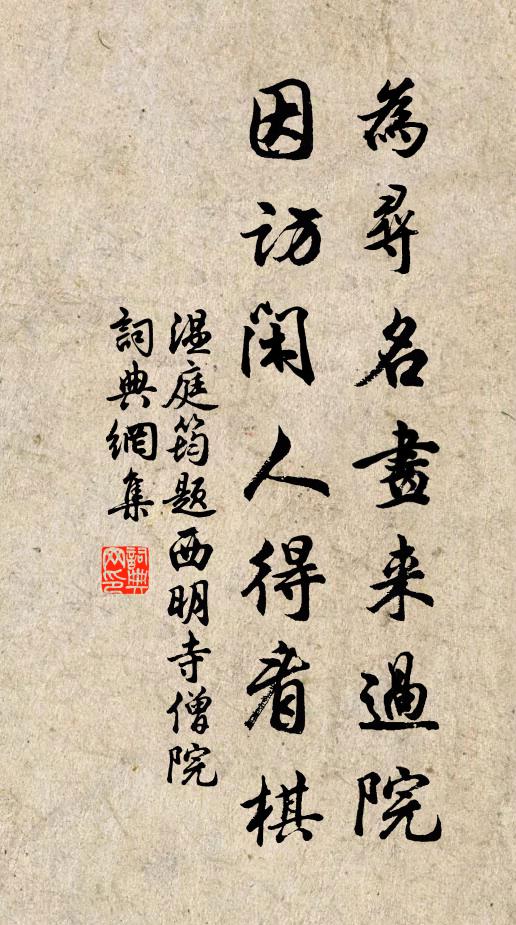 為尋名畫来過院
因訪閑人得看棋
温庭筠题西明寺僧院
詞典網集
詞典网印